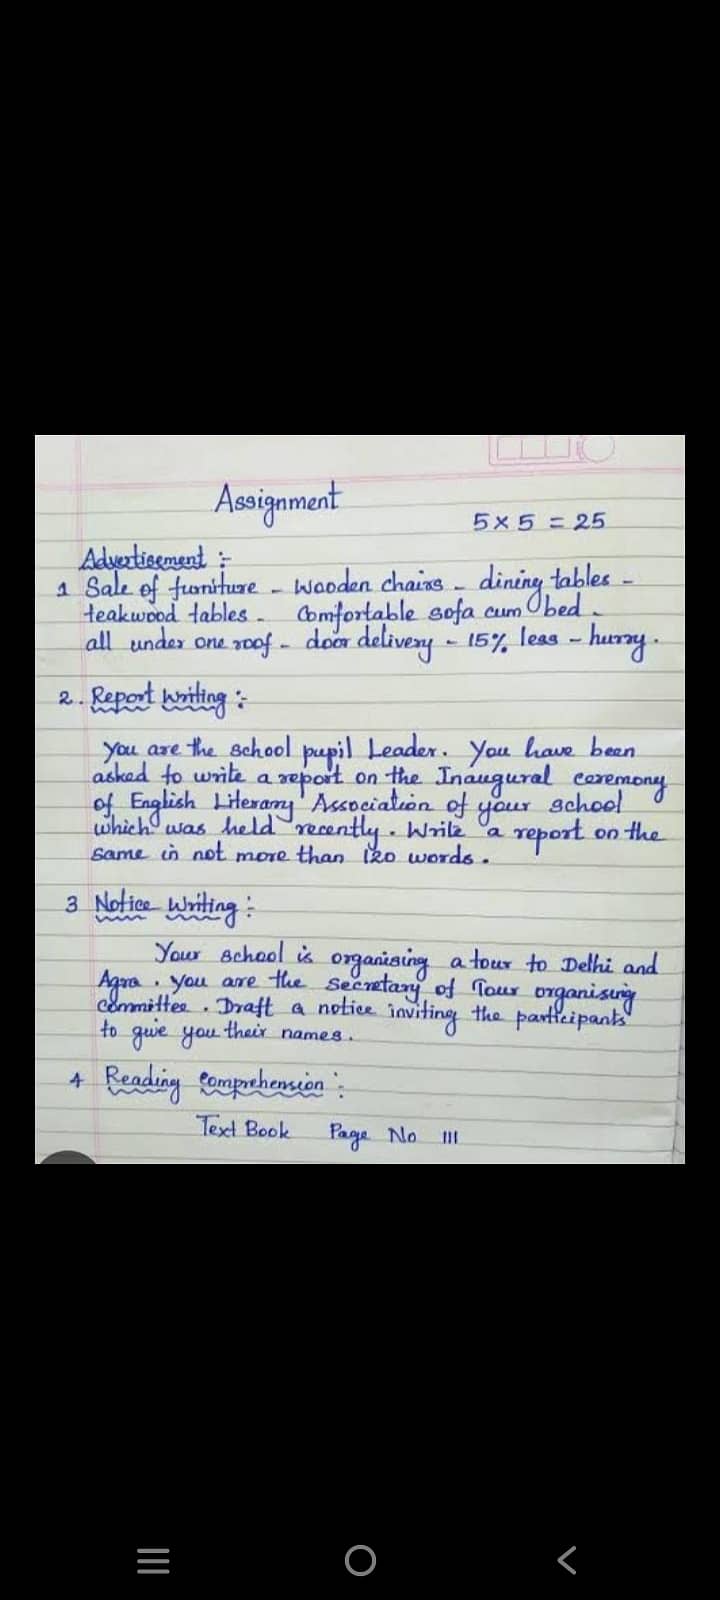 Assignment
5 x 5 = 25
Advertisement :-
1 Sale of furniture - Wooden chairs - dining tables -
teakwood tables - Comfortable sofa cum bed -
all under one roof - door delivery - 15% less - hurray.
2. Report Writing :-
You are the school pupil Leader. You have been
asked to write a report on the Inaugural ceremony
of English Literary Association of your school
which was held recently. Write a report on the
same in not more than 120 words.
3 Notice Writing :-
Your school is organising a tour to Delhi and
Agra. You are the secretary of Tour organising
committee. Draft a notice inviting the participants
to give you their names.
4 Reading Comprehension :-
Text Book Page No 111